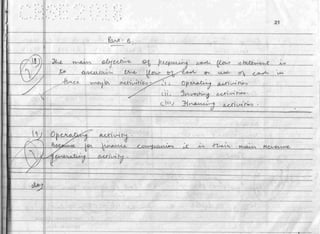 21
Part-B.
18) The main objective of preparing cash flow statement is
to ascertain the flow of cash or use of cash in
three major activities: (i) Operating activities
(ii) Investing activities
(iii) Financing activities.
19) Operating activity
Because for finance companies it is their main revenue
generating activity.